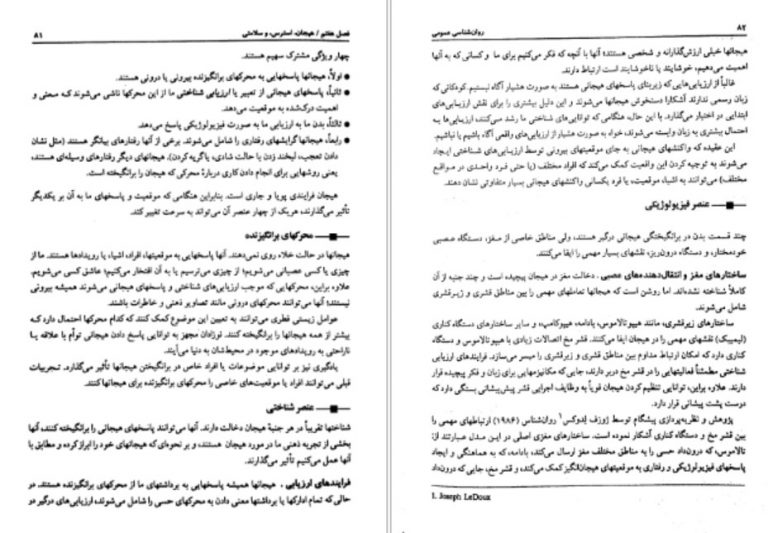 فصل هفتم / هیجان، استرس، و سلامتی ۸۱
چهار ویژگی مشترک سهیم هستند.
● اولاً، هیجانها پاسخهایی به محرکهای برانگیزنده بیرونی یا درونی هستند.
● ثانیاً، پاسخهای هیجانی از تعبیر یا ارزیابی شناختی ما از این محرکها ناشی می‌شوند که معنی و
اهمیت درک‌شده به موقعیت می‌دهد.
● ثالثاً، بدن ما به ارزیابی ما به صورت فیزیولوژیکی پاسخ می‌دهد.
● رابعاً، هیجانها گرایشهای رفتاری را شامل می‌شوند. برخی از آنها رفتارهای بیانگر هستند (مثل نشان
دادن تعجب، لبخند زدن با حالت شادی، یا گریه کردن). هیجانهای دیگر رفتارهای وسیله‌ای هستند،
یعنی روشهایی برای انجام دادن کاری دربارهٔ محرکی که هیجان را برانگیخته است.
هیجان فرایندی پویا و جاری است. بنابراین هنگامی که موقعیت و پاسخهای ما به آن بر یکدیگر
تأثیر می‌گذارند، هریک از چهار عنصر آن می‌تواند به سرعت تغییر کند.
محرکهای برانگیزنده
هیجانها در حالت خلاء روی نمی‌دهند. آنها پاسخهایی به موقعیتها، افراد، اشیا، یا رویدادها هستند. ما از
چیزی یا کسی عصبانی می‌شویم؛ از چیزی می‌ترسیم یا به آن افتخار می‌کنیم؛ عاشق کسی می‌شویم.
علاوه براین، محرکهایی که موجب ارزیابی‌های شناختی و پاسخهای هیجانی می‌شوند همیشه بیرونی
نیستند؛ آنها می‌توانند محرکهای درونی مانند تصاویر ذهنی و خاطرات باشند.
عوامل زیستی فطری می‌توانند به تعیین این موضوع کمک کنند که کدام محرکها احتمال دارد که
بیشتر از همه هیجانها را برانگیخته کنند. نوزادان مجهز به توانایی پاسخ دادن هیجانی توأم با علاقه یا
ناراحتی به رویدادهای موجود در محیطشان به دنیا می‌آیند.
یادگیری نیز بر توانایی موضوعات یا افراد خاص در برانگیختن هیجانها تأثیر می‌گذارد. تجربیات
قبلی می‌توانند افراد یا موقعیت‌های خاصی را محرکهای برانگیزنده برای هیجانها کنند.
عنصر شناختی
شناختها تقریباً در هر جنبهٔ هیجان دخالت دارند. آنها می‌توانند پاسخهای هیجانی را برانگیخته کنند، آنها
بخشی از تجربه ذهنی ما در مورد هیجان هستند، و بر نحوه‌ای که هیجانهای خود را ابراز کرده و مطابق با
آنها عمل می‌کنیم تأثیر می‌گذارند.
فرایندهای ارزیابی . هیجانها همیشه پاسخهایی به برداشتهای ما از محرکهای برانگیزنده هستند. در
حالی که تمام ادراکها یا برداشتها معنی دادن به محرکهای حسی را شامل می‌شوند، ارزیابی‌های درگیر در
۸۲ روان‌شناسی عمومی
هیجانها خیلی ارزش‌گذارانه و شخصی هستند؛ آنها با آنچه که فکر می‌کنیم برای ما و کسانی که به آنها
اهمیت می‌دهیم، خوشایند یا ناخوشایند است ارتباط دارند.
غالباً از ارزیابی‌هایی که زیربنای پاسخهای هیجانی هستند به صورت هشیار آگاه نیستیم. کودکانی که
زبان رسمی ندارند آشکارا دستخوش هیجانها می‌شوند و این دلیل بیشتری را برای نقش ارزیابی‌های
ابتدایی در اختیار می‌گذارد. با این حال، هنگامی که توانایی‌های شناختی ما رشد می‌کنند، ارزیابی‌ها به
احتمال بیشتری به زبان وابسته می‌شوند، خواه به صورت هشیار از ارزیابی‌های واقعی آگاه باشیم یا نباشیم.
این عقیده که واکنشهای هیجانی به جای موقعیتهای بیرونی توسط ارزیابی‌های شناختی ایجاد
می‌شوند به توجیه کردن این واقعیت کمک می‌کند که افراد مختلف (یا حتی فرد واحدی در مواقع
مختلف) می‌توانند به اشیا، موقعیت، یا فرد یکسانی واکنشهای هیجانی بسیار متفاوتی نشان دهند.
عنصر فیزیولوژیکی
چند قسمت بدن در برانگیختگی هیجانی درگیر هستند، ولی مناطق خاصی از مغز، دستگاه عصبی
خودمختار، و دستگاه درون‌ریز، نقشهای بسیار مهمی را ایفا می‌کنند.
ساختارهای مغز و انتقال‌دهنده‌های عصبی . دخالت مغز در هیجان پیچیده است و چند جنبه از آن
کاملاً شناخته نشده‌اند. اما روشن است که هیجانها تعاملهای مهمی را بین مناطق قشری و زیرقشری
شامل می‌شوند.
ساختارهای زیرقشری، مانند هیپوتالاموس، بادامه، هیپوکامپ، و سایر ساختارهای دستگاه کناری
(لیمبیک) نقشهای مهمی را در هیجان ایفا می‌کنند. قشر مخ اتصالات زیادی با هیپوتالاموس و دستگاه
کناری دارد که امکان ارتباط مداوم بین مناطق قشری و زیرقشری را میسر می‌سازد. فرایندهای ارزیابی
شناختی مطمئناً فعالیتهایی را در قشر مخ دربر دارند، جایی که مکانیزمهایی برای زبان و فکر پیچیده قرار
دارند. علاوه براین، توانایی تنظیم کردن هیجان قویاً به وظایف اجرایی قشر پیش‌پیشانی بستگی دارد که
درست پشت پیشانی قرار دارد.
پژوهش و نظریه‌پردازی پیشگام توسط ژوزف لدوکس۱ روان‌شناس (۱۹۸۶) ارتباطهای مهمی را
بین قشر مخ و دستگاه کناری آشکار نموده است. ساختارهای مغزی اصلی در این مدل عبارتند از:
تالاموس، که درون‌داد حسی را به مناطق مختلف مغز ارسال می‌کند، بادامه، که به هماهنگی و ایجاد
پاسخهای فیزیولوژیکی و رفتاری به موقعیتهای هیجان‌انگیز کمک می‌کند، و قشر مخ، جایی که درون‌داد
1. Joseph LeDoux